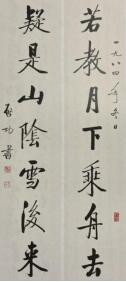 若教月下乘舟去
一九八四年冬日
疑是山陰雪後来
啟功書